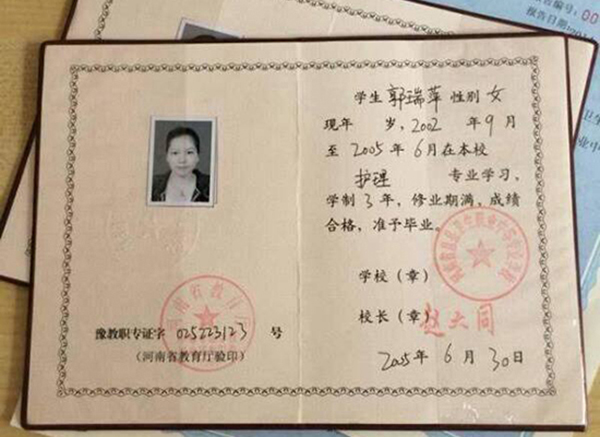 学生 郭瑞萍 性别 女
现年 岁,2002 年 9 月
至 2005 年 6 月在本校
护理 专业学习,
学制 3 年,修业期满,成绩
合格,准予毕业。
学校(章)
校长(章) 赵六同
2005 年 6 月 30 日
河南省教育厅
豫教职专证字 025223123 号
(河南省教育厅验印)
报告日期: